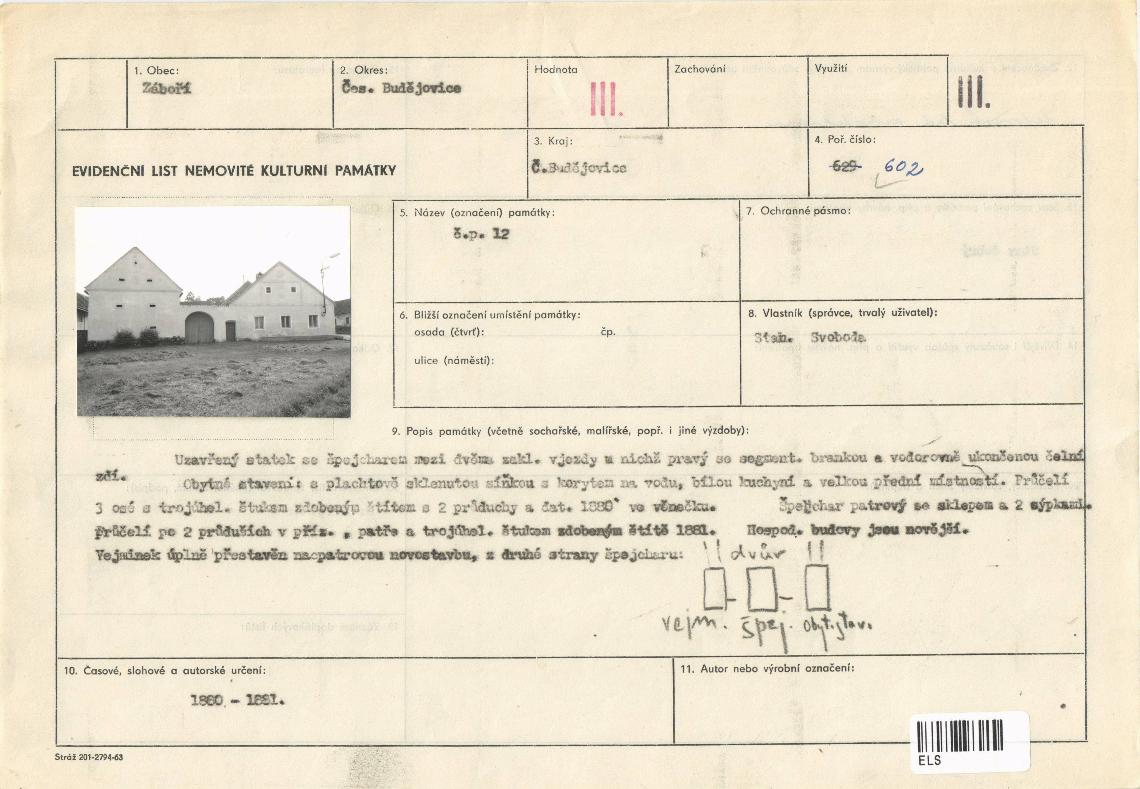 1. Obec:
Záboří
2. Okres:
Čes. Budějovice
Hodnota
III.
Zachování
Využití
III.
EVIDENČNÍ LIST NEMOVITÉ KULTURNÍ PAMÁTKY
3. Kraj:
Č.Budějovice
4. Poř. číslo:
629 602
5. Název (označení) památky:
č.p. 12
7. Ochranné pásmo:
6. Bližší označení umístění památky:
osada (čtvrť): čp.
ulice (náměstí):
8. Vlastník (správce, trvalý uživatel):
Stan. Svoboda
9. Popis památky (včetně sochařské, malířské, popř. i jiné výzdoby):
Uzavřený statek se špejcharem mezi dvěma zakl. vjezdy u nichž pravý se segment. brankou a vodorovně ukončenou čelní
zdí.
Obytné stavení: s plachtově sklenutou síňkou s korytem na vodu, bílou kuchyní a velkou přední místností. Průčelí
3 osé s trojúhel. štukem zdobeným štítem s 2 průduchy a dat. 1880 ve věnečku. Špejchar patrový se sklepem a 2 sýpkami.
Průčelí po 2 průduších v příz. , patře a trojúhel. štukem zdobeným štítě 1881. Hospod. budovy jsou novější.
Vejminek úplně přestavěn na patrovou novostavbu, z druhé strany špejcharu:
dvůr
vejm. špej. obyt.stav.
10. Časové, slohové a autorské určení:
1880 - 1881.
11. Autor nebo výrobní označení:
Stráž 201-2794-63
ELS